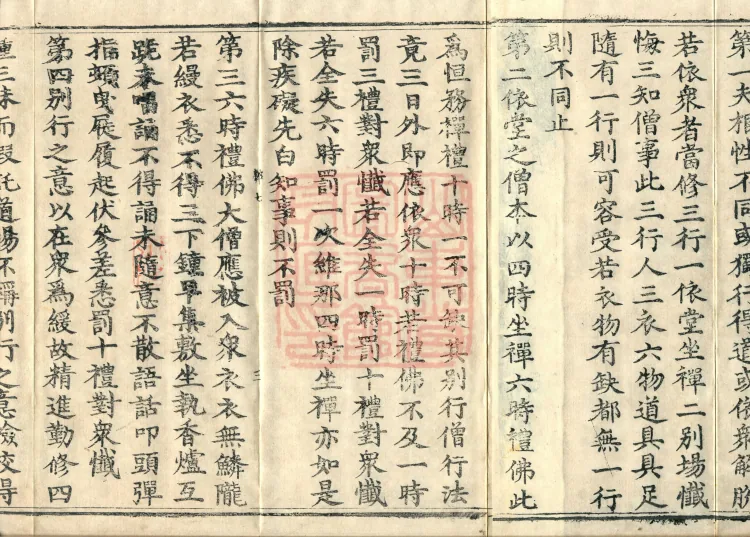 第一夫根性不同或獨行得道或依衆解脫
若依衆者當修三行一依堂坐禪二別場懺
悔三知僧事此三行人三衣六物道具具足
隨有一行則可容受若衣物有缺都無一行
則不同止
第二依堂之僧本以四時坐禪六時禮佛此
爲恒務禪禮十時一不可缺其別行僧行法
竟三日外即應依衆十時若禮佛不及一時
罰三禮對衆懺若全失一時罰十禮對衆懺
若全失六時罰一次維那四時坐禪亦如是
除疾礙先白知事則不罰
第三六時禮佛大僧應被入衆衣衣無鱗隴
若縵衣悉不得三下鐘早集敷坐執香爐互
跪未唱誦不得誦未隨意不散語話叩頭彈
指頓曳屣履起伏參差悉罰十禮對衆懺
第四別行之意以在衆爲緩故精進勤修四
種三昧而假託道場不稱別行之意檢校得